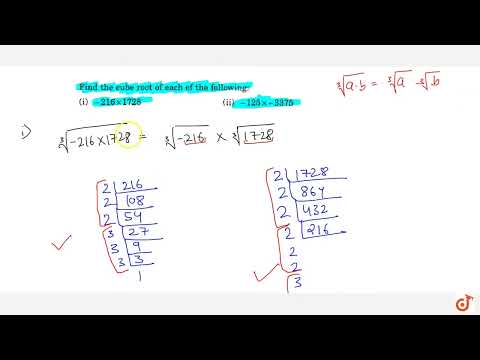 Find the cube root of each of the following:
(i) −216×1728 (ii) −125×−3375
∛a·b = ∛a · ∛b
i) ∛−216×1728 = ∛−216 × ∛1728
2 216
2 108
2 54
3 27
3 9
3 3
1
2 1728
2 864
2 432
2 216
2
2
3